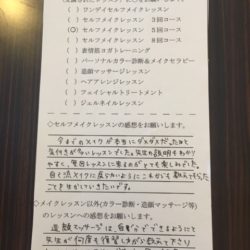 ( ) ワンデイセルフメイクレッスン
( ) セルフメイクレッスン 3回コース
(○) セルフメイクレッスン 5回コース
( ) セルフメイクレッスン 8回コース
( ) 表情筋ヨガトレーニング
( ) パーソナルカラー診断&メイクセラピー
( ) 造顔マッサージレッスン
( ) ヘアアレンジレッスン
( ) フェイシャルトリートメント
( ) ジェルネイルレッスン
◇セルフメイクレッスンの感想をお願いします。
今までのメイクが本当にダメダメだったなと
気付きが多いレッスンでした。先生の説明もわかり
やすく、毎回レッスンに来るのがとても楽しみでした。
自己流メイクに戻らないようにこれからも教えてもらった
ことを生かしていきたいです。
◇メイクレッスン以外(カラー診断・造顔マッサージ等)
のレッスンへの感想をお願いします。
造顔マッサージは、自宅でできるようにと
先生が何度も復習しながら教えて下さり